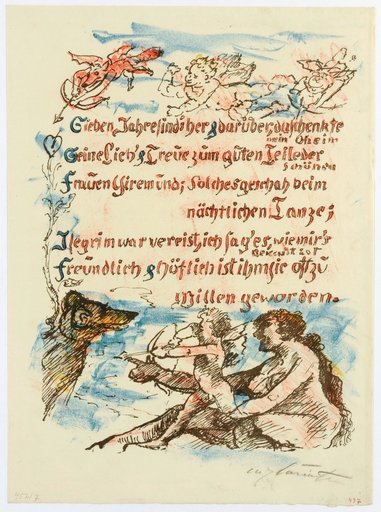 Sieben Jahre sind's her & darüber; da schenkte
mein Oheim
Seine Lieb's & Treue zum guten Teile der
schönen
Frauen Giremund; solches geschah beim
nächtlichen Tanze;
Isegrim war vereist, ich sag'es, wie mir's
bekannt ist
Freundlich & höflich ist ihm sie oft zu
Willen geworden.
437